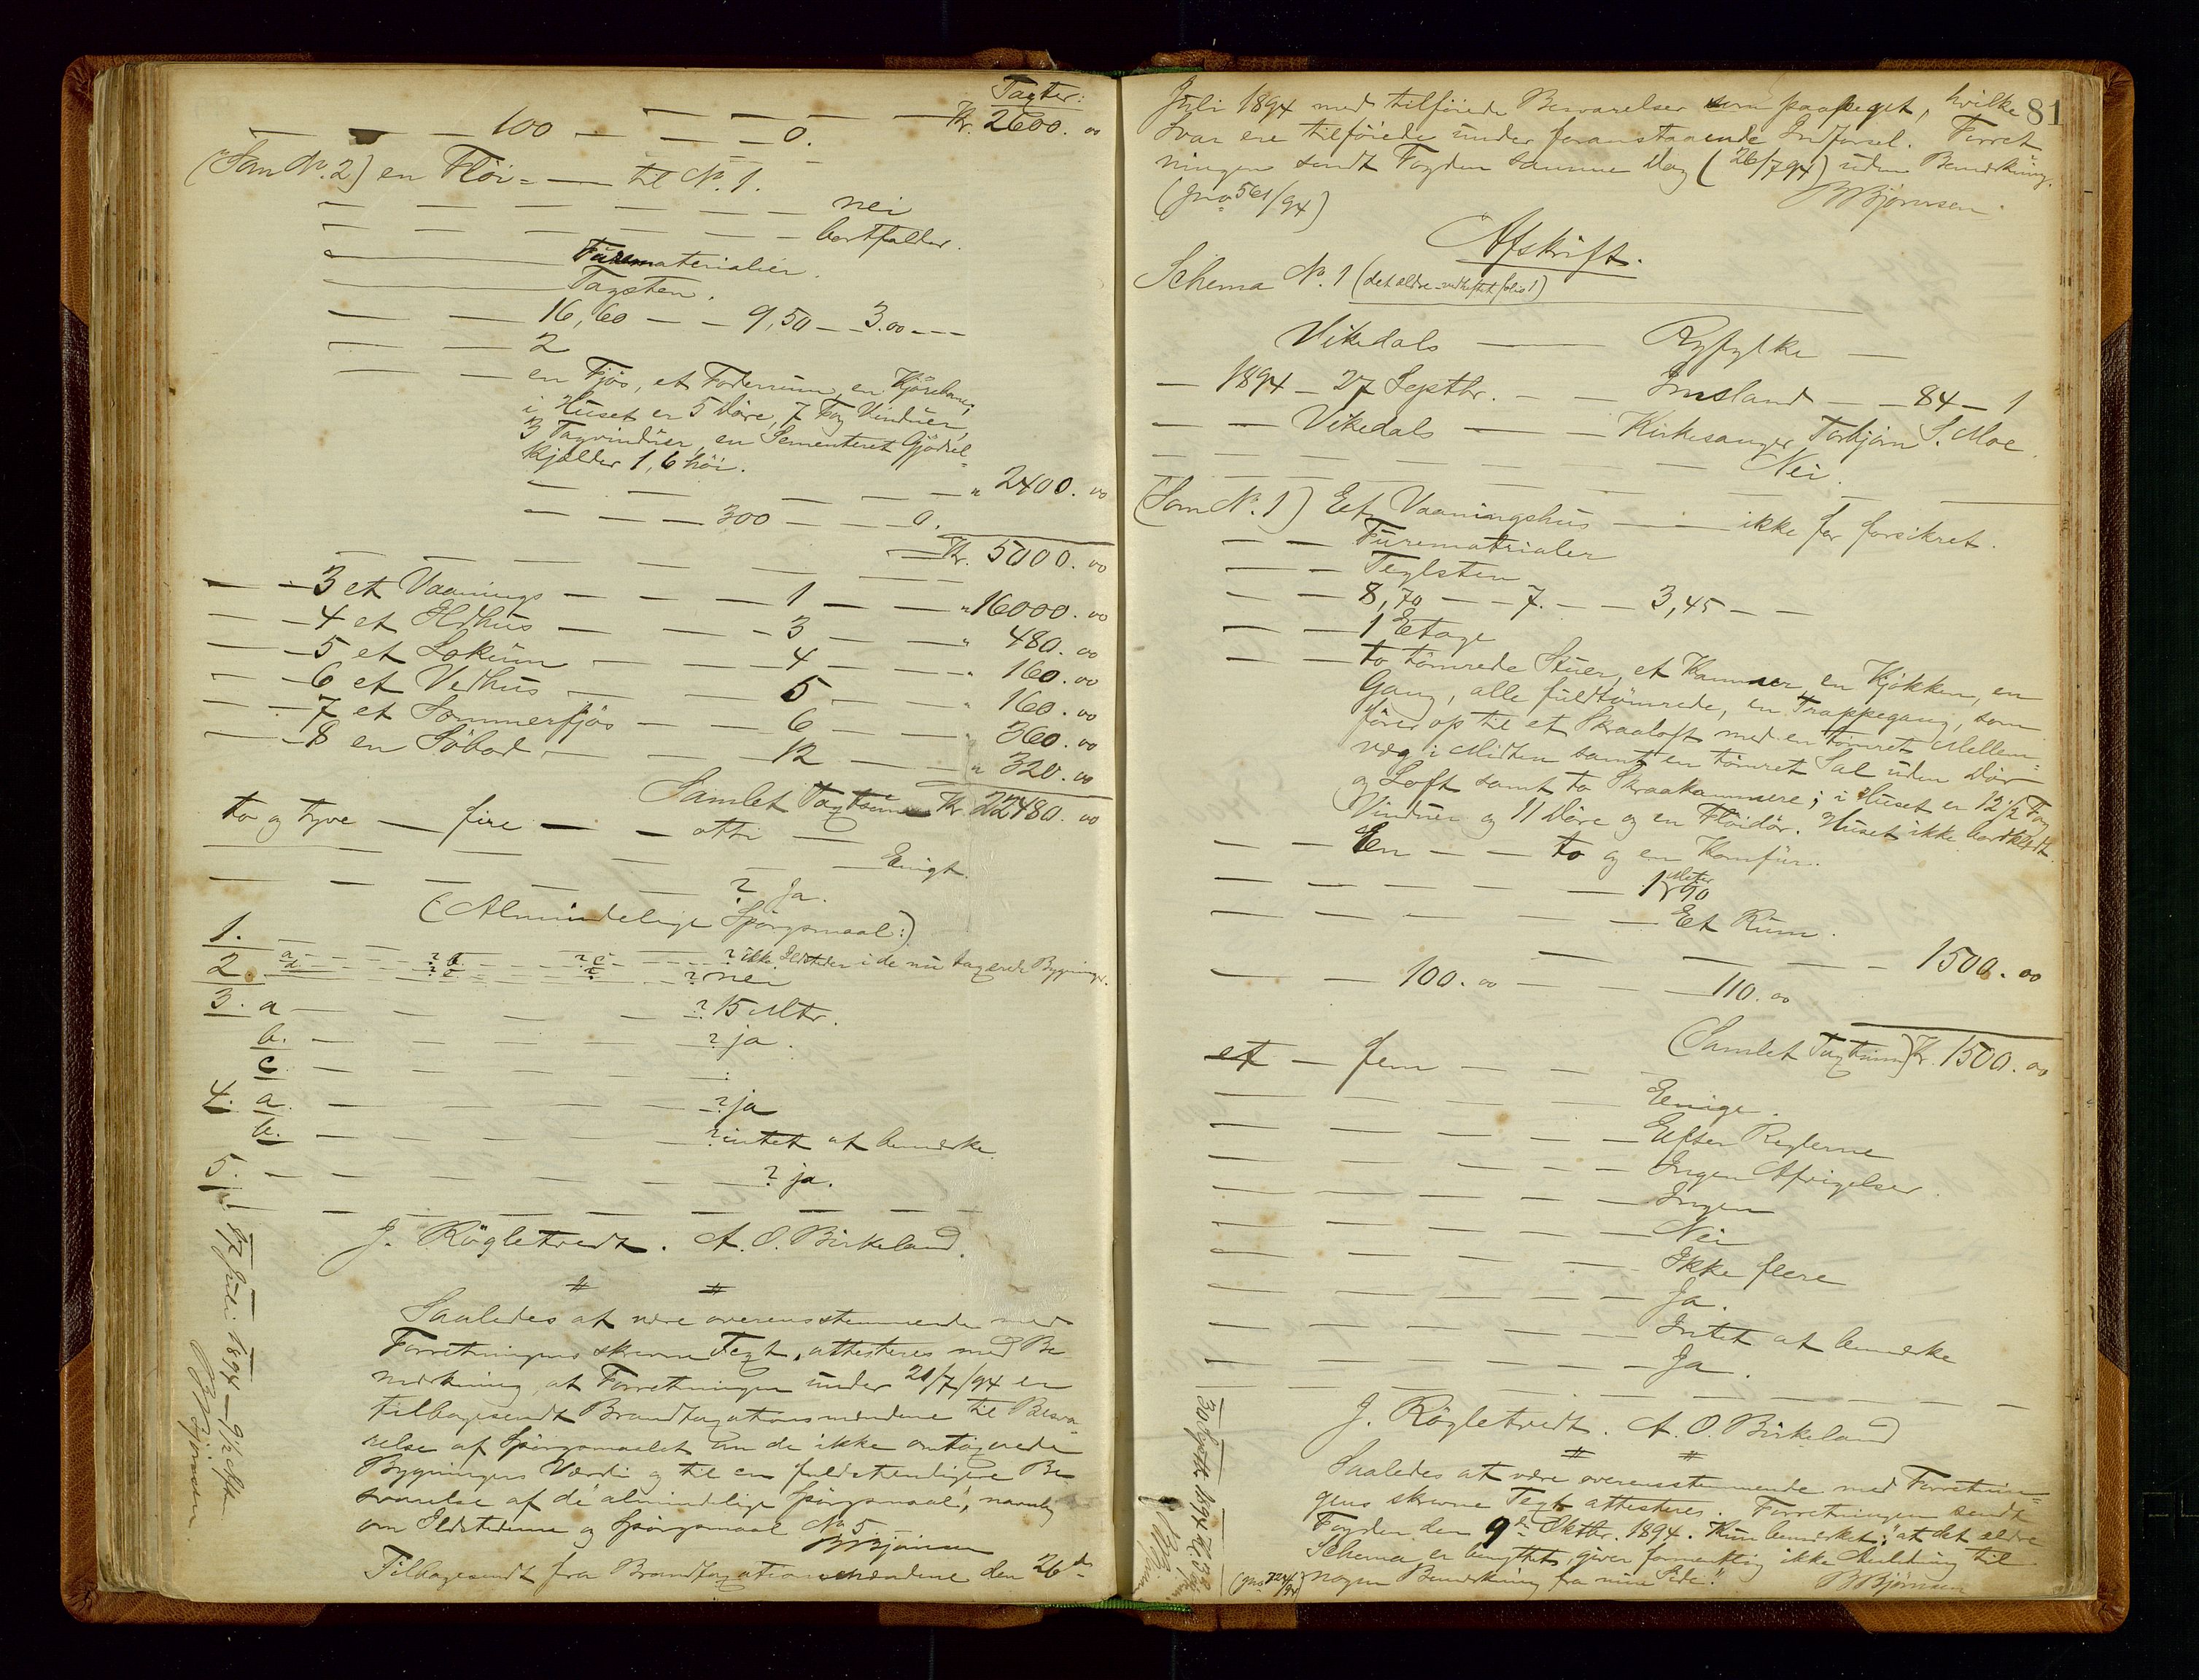 Taxter:
— — — 100 — — 0. — — — Kr. 2600. 00
(Som No. 2) en Flöi= — til No. 1.
— — — — — — nei
— — — — — — bortfalder.
— Furematerialier.
— Tagsten.
— — 16,60 — — 9,50 — 3.00 — — —
— — 2
— — en Fjös, et Foderrum, en Kjörebane,
i Huset er 5 Döre, 7 Fag Vinduer,
3 Tagvinduer, en Sementeret Gjödsel=
kjælder 1,6 höi.
— — — — — — " 2400. 00
— — — 300 — — 0.
— — — — — Kr. 5000. 00
— — 3 et Vaanings — — — 1 — — — " 16000. 00
— — 4 et Ildhus — — — 3 — — " 480. 00
— — 5 et Lokum — — — 4 — — " 160. 00
— — 6 et Vedhus — — 5 — — " 160. 00
— — 7 et Sommerfjös — — 6 — — " 360. 00
— — 8 en Söbod — — 12 — — " 320. 00
Samlet Taxtsum Kr. 22480. 00
to og tyve — fire — — otti —
— — — — — — Enigt.
— — — — — ? Ja.
(Almindelige Spörgsmaal:)
1. — — — — ? ikke Ildsteder i de nu taxerede Bygninger.
2. — — — — ? nei
3. a — — — — ? 15 Mtr.
b. — — — — ? ja.
c. — — — —
4. a. — — — — ? ja
b. — — — — ? intet at bemærke
5. — — — — — ? ja.
J. Rögletvedt. A. O. Birkeland.
Saaledes at være overensstemmende med
Forretningens skrevne Text, attesteres med Be
mærkning, at Forretningen under 21/7/94 er
tilbagesendt Brandtaxationsmændene til Besva
relse af Spörgsmaalet om de ikke omtaxerede
Bygningers Værdi og til en fuldstændigere Be
svarelse af de almindelige Spörgsmaal, navnlig
om Ildstederne og Spörgsmaal No 5
BBjörnsen
Tilbagesendt fra Brandtaxationsmændene den 26de
17 Juli 1894 — 9 1/2 Eftm
BBjörnsen.
81
Juli 1894 med tilföiede Besvarelser som paapeget, hvilke
Svar ere tilföiede under foranstaaende Indförsel. Forret
ningen sendt Fogden samme Dag (26/7 94) uden Bemærkning.
(Jno 561/94) BBjörnsen
Afskrift.
Schema No. 1 (det ældre — vedheftet folio 1)
Vikedals — Ryfylke —
— 1894 — 27 Septbr. — — Imsland — — 84 — 1
— — Vikedals — — Kirkesanger Torbjörn S. Moe
— — — — — — Nei.
(Som No. 1) Et Vaaningshus — — ikke för forsikret.
— — Furematrialer
— — Teglsten
— — 8,70 — — 7. — — 3,45 — —
— — 1 Etage
— — to tömrede Stuer, et Kammer, en Kjökken, en
Gang, alle fuldtömrede, en Trappegang, som
förer op til et Skraaloft med en tömret Mellem=
væg i Midten samt en tömret Sal uden Dör
og Loft samt to Skraakammere; i Huset er 12 1/2 Fag
Vinduer og 11 Döre og en Flöidör. Huset ikke bordklædt.
— — En — — to og en Komfur.
— — — — — 1 Meter 90
— — — — — Et Rum.
— — — — — 1500. 00
— — 100. 00 — — — 110. 00
(Samlet Taxtsum) Kr. 1500. 00
et — fem — — —
— — — — — Enige.
— — — — — Efter Reglerne
— — — — — Ingen Afvigelser.
— — — — — Ingen
— — — — — Nei
— — — — — Ikke flere
— — — — — Ja.
— — — — — Intet at bemærke
— — — — — Ja.
J. Rögletvedt. A. O. Birkeland
Saaledes at være overensstemmende med Forretnin=
gens skrevne Text attesteres. Forretningen sendt
Fogden den 9de Oktbr. 1894. Kun bemærket: "at det ældre
Schema er benyttet, giver formentlig ikke Anledning til
nogen Bemærkning fra min Side." BBjörnsen
(Jno 724/94)
30 Septbr 1894
BBjörnsen